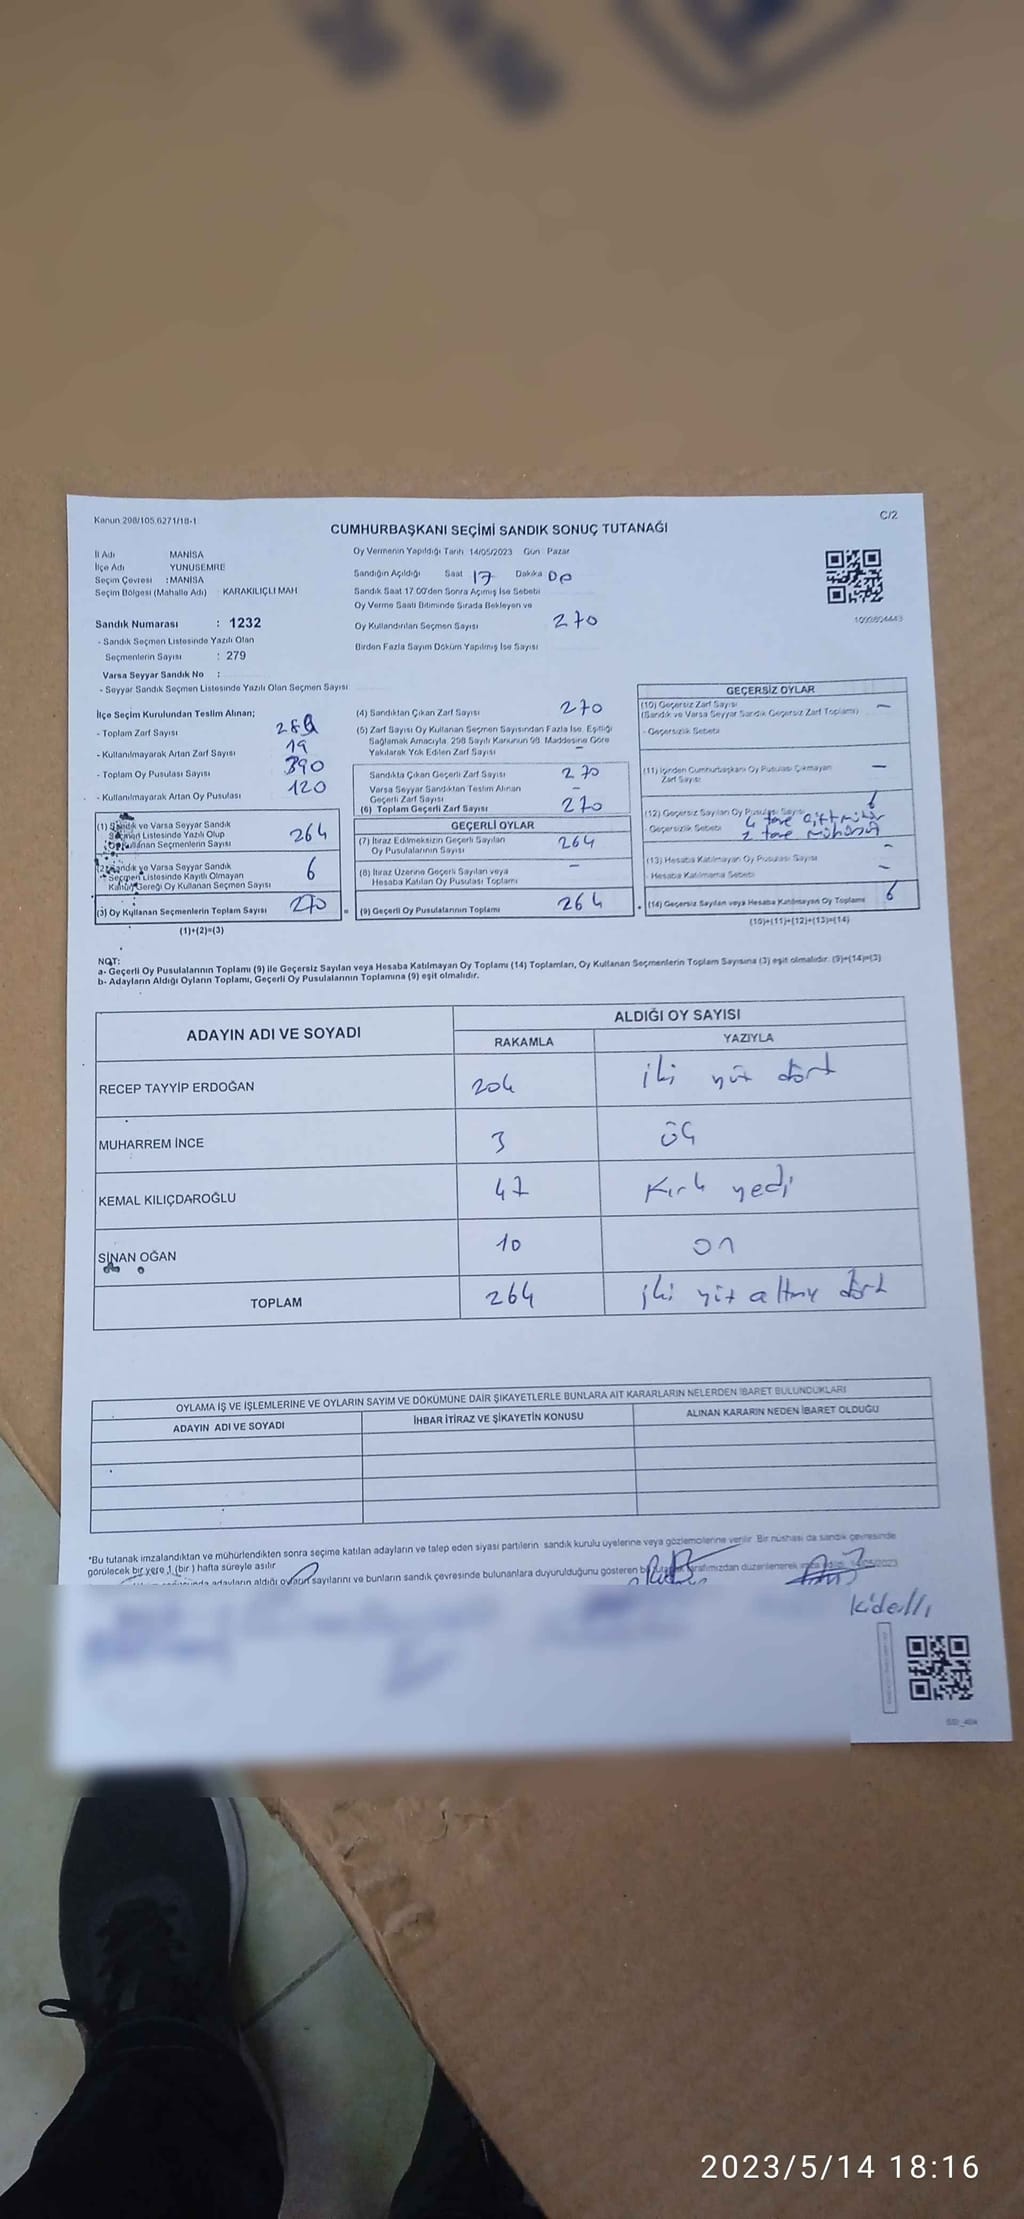 Kanun 298/105 6271/18-1
C/2
CUMHURBAŞKANI SEÇİMİ SANDIK SONUÇ TUTANAĞI
İl Adı MANİSA
İlçe Adı YUNUSEMRE
Seçim Çevresi : MANİSA
Seçim Bölgesi (Mahalle Adı) KARAKILIÇLI MAH
Sandık Numarası : 1232
- Sandık Seçmen Listesinde Yazılı Olan
Seçmenlerin Sayısı : 279
Varsa Seyyar Sandık No :
- Seyyar Sandık Seçmen Listesinde Yazılı Olan Seçmen Sayısı
Oy Vermenin Yapıldığı Tarih 14/05/2023 Gün Pazar
Sandığın Açıldığı Saat 17 Dakika 00
Sandık Saat 17.00'den Sonra Açılmış İse Sebebi
Oy Verme Saati Bitiminde Sırada Bekleyen ve
Oy Kullandırılan Seçmen Sayısı 270
Birden Fazla Sayım Döküm Yapılmış İse Sayısı
İlçe Seçim Kurulundan Teslim Alınan;
- Toplam Zarf Sayısı
- Kullanılmayarak Artan Zarf Sayısı 19
- Toplam Oy Pusulası Sayısı 390
- Kullanılmayarak Artan Oy Pusulası 120
(1) Sandık ve Varsa Seyyar Sandık
Seçmen Listesinde Yazılı Olup
Oy Kullanan Seçmenlerin Sayısı 264
(2) Sandık ve Varsa Seyyar Sandık
Seçmen Listesinde Kayıtlı Olmayan
Kanun Gereği Oy Kullanan Seçmen Sayısı 6
(3) Oy Kullanan Seçmenlerin Toplam Sayısı 270
(1)+(2)=(3)
(4) Sandıktan Çıkan Zarf Sayısı 270
(5) Zarf Sayısı Oy Kullanan Seçmen Sayısından Fazla İse, Eşitliği
Sağlamak Amacıyla, 298 Sayılı Kanunun 98. Maddesine Göre
Yakılarak Yok Edilen Zarf Sayısı –
Sandıkta Çıkan Geçerli Zarf Sayısı 270
Varsa Seyyar Sandıktan Teslim Alınan
Geçerli Zarf Sayısı –
(6) Toplam Geçerli Zarf Sayısı 270
GEÇERLİ OYLAR
(7) İtiraz Edilmeksizin Geçerli Sayılan
Oy Pusulalarının Sayısı 264
(8) İtiraz Üzerine Geçerli Sayılan veya
Hesaba Katılan Oy Pusulası Toplamı –
(9) Geçerli Oy Pusulalarının Toplamı 264
GEÇERSİZ OYLAR
(10) Geçersiz Zarf Sayısı –
(Sandık ve Varsa Seyyar Sandık Geçersiz Zarf Toplamı)
- Geçersizlik Sebebi
(11) İçinden Cumhurbaşkanı Oy Pusulası Çıkmayan
Zarf Sayısı –
(12) Geçersiz Sayılan Oy Pusulası Sayısı 6
- Geçersizlik Sebebi 4 tane çift mühür
2 tane mühürsüz
(13) Hesaba Katılmayan Oy Pusulası Sayısı –
- Hesaba Katılmama Sebebi –
(14) Geçersiz Sayılan veya Hesaba Katılmayan Oy Toplamı 6
(10)+(11)+(12)+(13)=(14)
NOT:
a- Geçerli Oy Pusulalarının Toplamı (9) ile Geçersiz Sayılan veya Hesaba Katılmayan Oy Toplamı (14) Toplamları, Oy Kullanan Seçmenlerin Toplam Sayısına (3) eşit olmalıdır. (9)+(14)=(3)
b- Adayların Aldığı Oyların Toplamı, Geçerli Oy Pusulalarının Toplamına (9) eşit olmalıdır.
ADAYIN ADI VE SOYADI
ALDIĞI OY SAYISI
RAKAMLA YAZIYLA
RECEP TAYYİP ERDOĞAN 204 iki yüz dört
MUHARREM İNCE 3 üç
KEMAL KILIÇDAROĞLU 47 Kırk yedi
SİNAN OĞAN 10 on
TOPLAM 264 iki yüz altmış dört
OYLAMA İŞ VE İŞLEMLERİNE VE OYLARIN SAYIM VE DÖKÜMÜNE DAİR ŞİKAYETLERLE BUNLARA AİT KARARLARIN NELERDEN İBARET BULUNDUKLARI
ADAYIN ADI VE SOYADI İHBAR İTİRAZ VE ŞİKAYETİN KONUSU ALINAN KARARIN NEDEN İBARET OLDUĞU
*Bu tutanak imzalandıktan ve mühürlendikten sonra seçime katılan adayların ve talep eden siyasi partilerin sandık kurulu üyelerine veya gözlemcilerine verilir. Bir nüshası da sandık çevresinde
görülecek bir yere 1 (bir) hafta süreyle asılır.
adayların aldığı oyların sayılarını ve bunların sandık çevresinde bulunanlara duyurulduğunu gösteren düzenlenerek 14/05/2023
2023/5/14 18:16